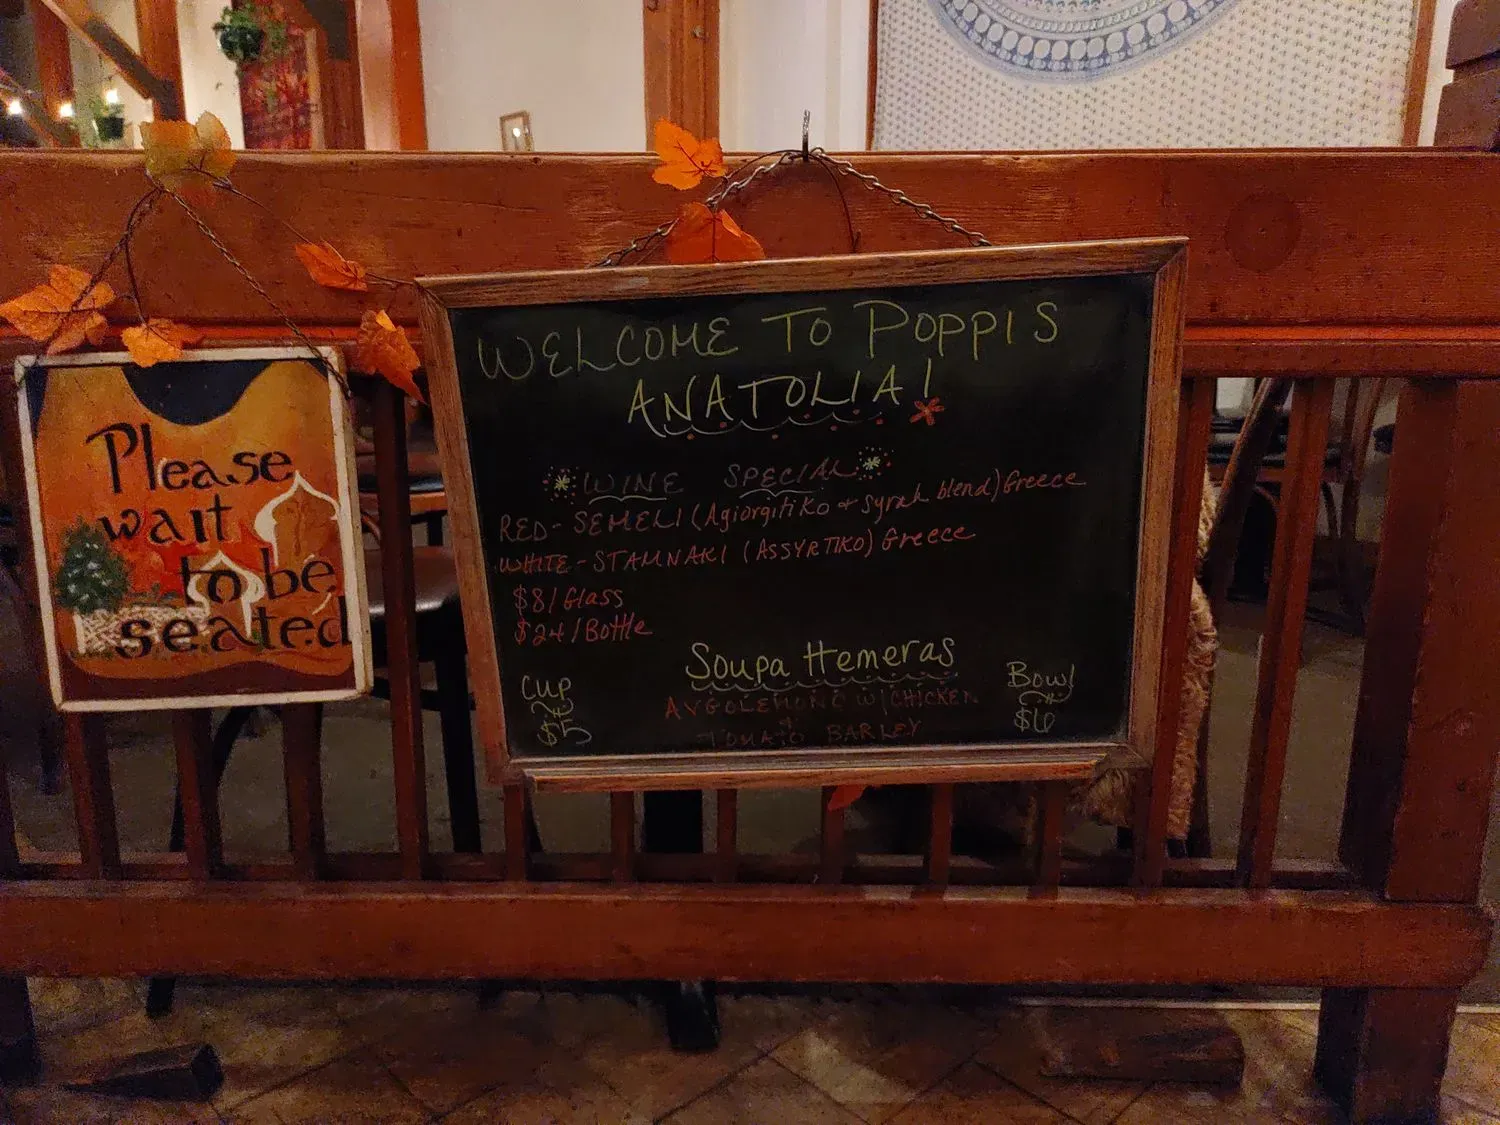 Please
wait
to be
seated
WELCOME TO POPPIS
ANATOLIA!
WINE SPECIAL
RED - SEMELI (Agiorgitiko & Syrah blend) Greece
WHITE - STAMNAKI (ASSYRTIKO) Greece
$8/Glass
$24/Bottle
Soupa Hemeras
Cup
$5
AVGOLEMONO W/CHICKEN
&
TOMATO BARLEY
Bowl
$6